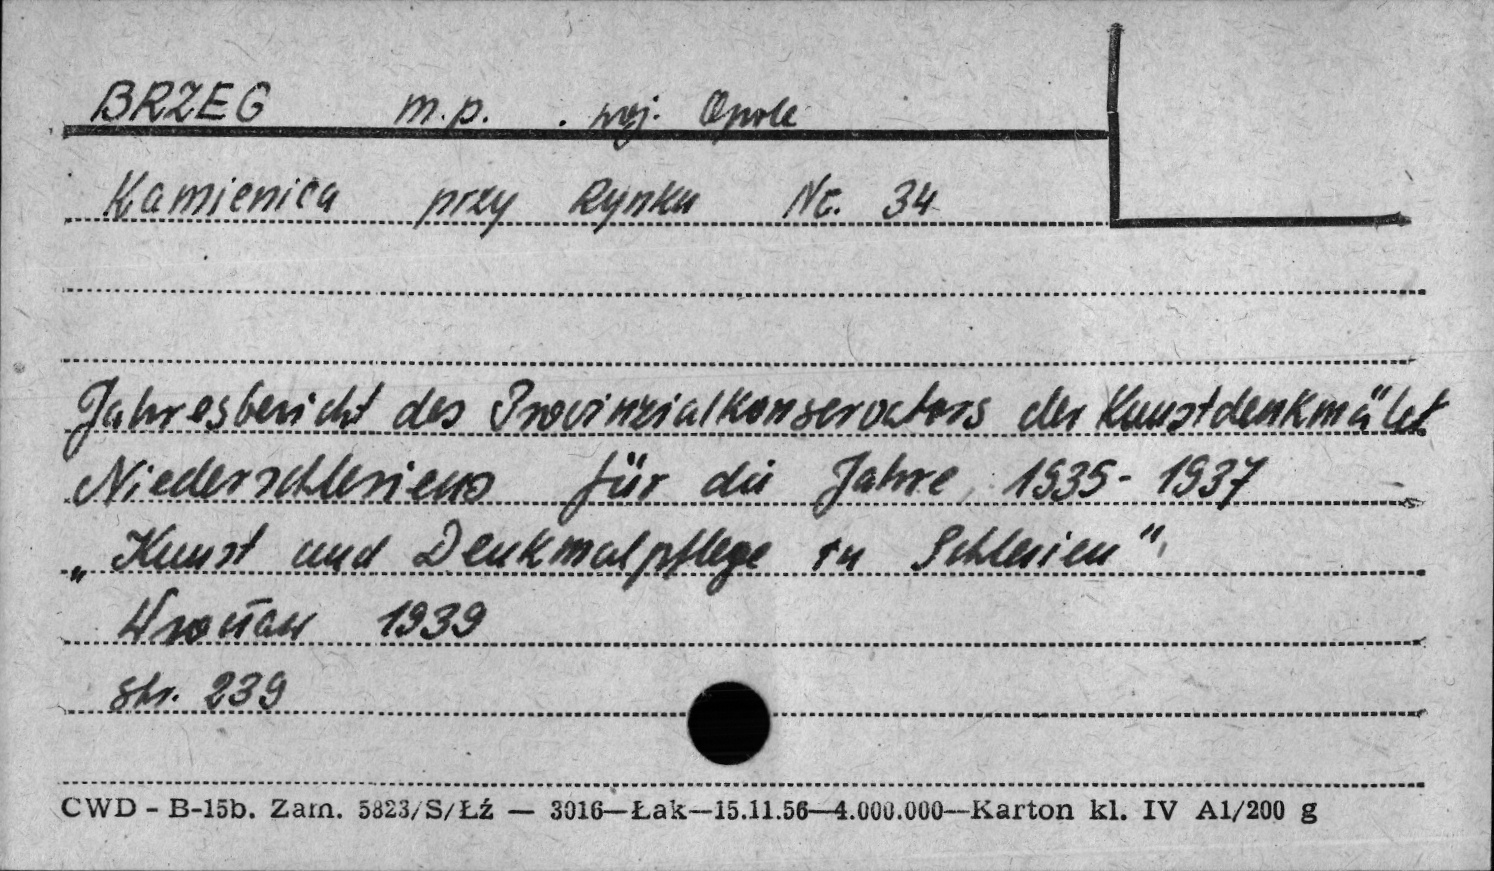 BRZEG m.p. . woj. Opole
Kamienica przy Rynku Nr. 34
Jahresbericht des Provinzialkonservators der Kunstdenkmäler
Niederschlesiens für die Jahre 1935-1937
„Kunst und Denkmalpflege in Schlesien"
Wrocław 1939
str. 239
CWD - B-15b. Zam. 5823/S/Łź — 3016—Łak—15.11.56—4.000.000—Karton kl. IV A1/200 g